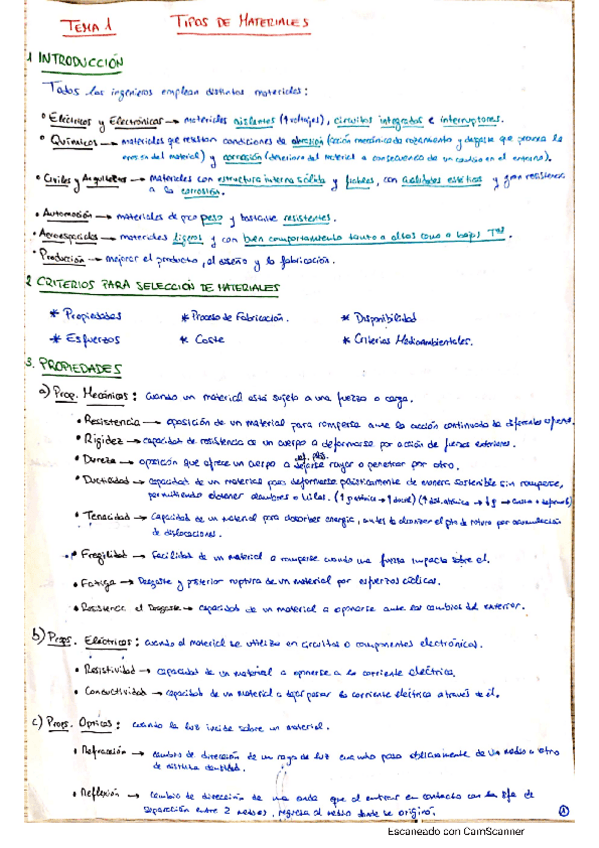 TEMA 1 TIPOS DE MATERIALES
1 INTRODUCCIÓN
Todos los ingenieros emplean distintos materiales:
• Eléctricos y Electrónicos → materiales aislantes (↑voltajes), circuitos integrados e interruptores.
• Químicos → materiales que resistan condiciones de abrasión (acción mecánica de rozamiento y desgaste que provoca la
erosión del material) y corrosión (deterioro del material a consecuencia de un cambio en el entorno).
• Civiles y Arquitectos → materiales con estructura interna sólida y fiables, con cualidades estéticas y gran resistencia
a la corrosión.
• Automoción → materiales de poco peso y bastante resistentes.
• Aeroespaciales → materiales ligeros y con buen comportamiento tanto a altas como a bajas Tªs.
• Producción → mejorar el producto, el diseño y la fabricación.
2 CRITERIOS PARA SELECCIÓN DE MATERIALES
* Propiedades * Proceso de Fabricación. * Disponibilidad
* Esfuerzos * Coste * Criterios Medioambientales.
3. PROPIEDADES
a) Prop. Mecánicas: cuando un material está sujeto a una fuerza o carga.
• Resistencia → oposición de un material para romperse ante la acción continuada de diferentes esfuerzos.
• Rigidez → capacidad de resistencia de un cuerpo a deformarse por acción de fuerzas exteriores.
• Dureza → oposición que ofrece un cuerpo a dejarse rayar o penetrar por otro.
• Ductilidad → capacidad de un material para deformarse plásticamente de manera sostenible sin romperse,
permitiendo obtener alambres o hilos.
• Tenacidad → Capacidad de un material para absorber energía, antes de alcanzar el pto de rotura por acumulación
de dislocaciones.
• Fragilidad → Facilidad de un material a romperse cuando una fuerza impacta sobre él.
• Fatiga → Desgaste y posterior ruptura de un material por esfuerzos cíclicos.
• Resistencia al Desgaste → capacidad de un material a oponerse ante los cambios del exterior.
b) Props. Eléctricas: cuando el material se utiliza en circuitos o componentes electrónicos.
• Resistividad → capacidad de un material a oponerse a la corriente eléctrica.
• Conductividad → capacidad de un material a dejar pasar la corriente eléctrica a través de él.
c) Props. Ópticas: cuando la luz incide sobre un material.
• Refracción → cambio de dirección de un rayo de luz cuando pasa oblicuamente de un medio a otro
de distinta densidad.
• Reflexión → cambio de dirección de una onda que al entrar en contacto con la sfe de
separación entre 2 medios, regresa al medio donde se originó.
1
Escaneado con CamScanner